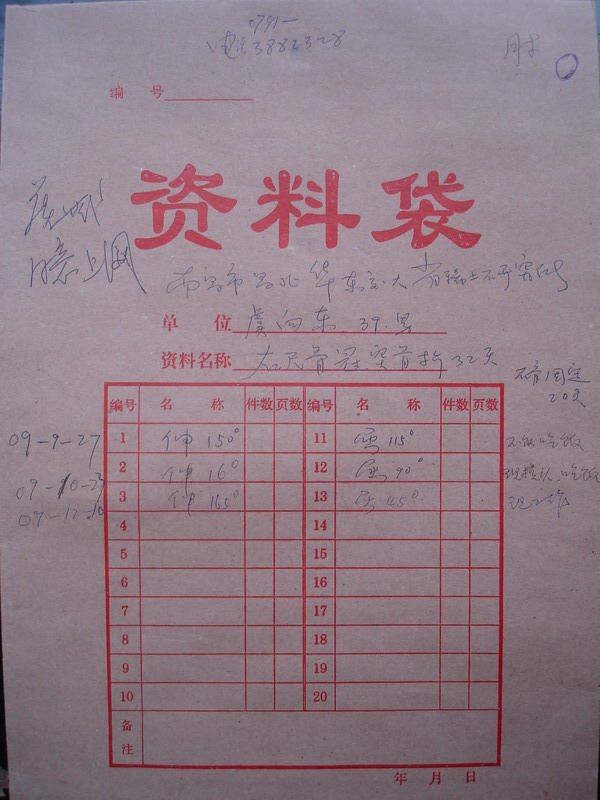 0791-
电话3882328
肘
编 号
资料袋
上网
南昌市昌北华东交大
单 位 虞向东 39.男
资料名称 右尺骨冠突骨折32天
石膏固定
20天
编号 名 称 件数 页数 编号 名 称 件数 页数
09-9-27 1 伸150° 11 屈115° 不能吃饭
09-10-23 2 伸160° 12 屈90° 吃饭
09-12-10 3 伸165° 13 屈45° 现工作
4 14
5 15
6 16
7 17
8 18
9 19
10 20
备注
年 月 日